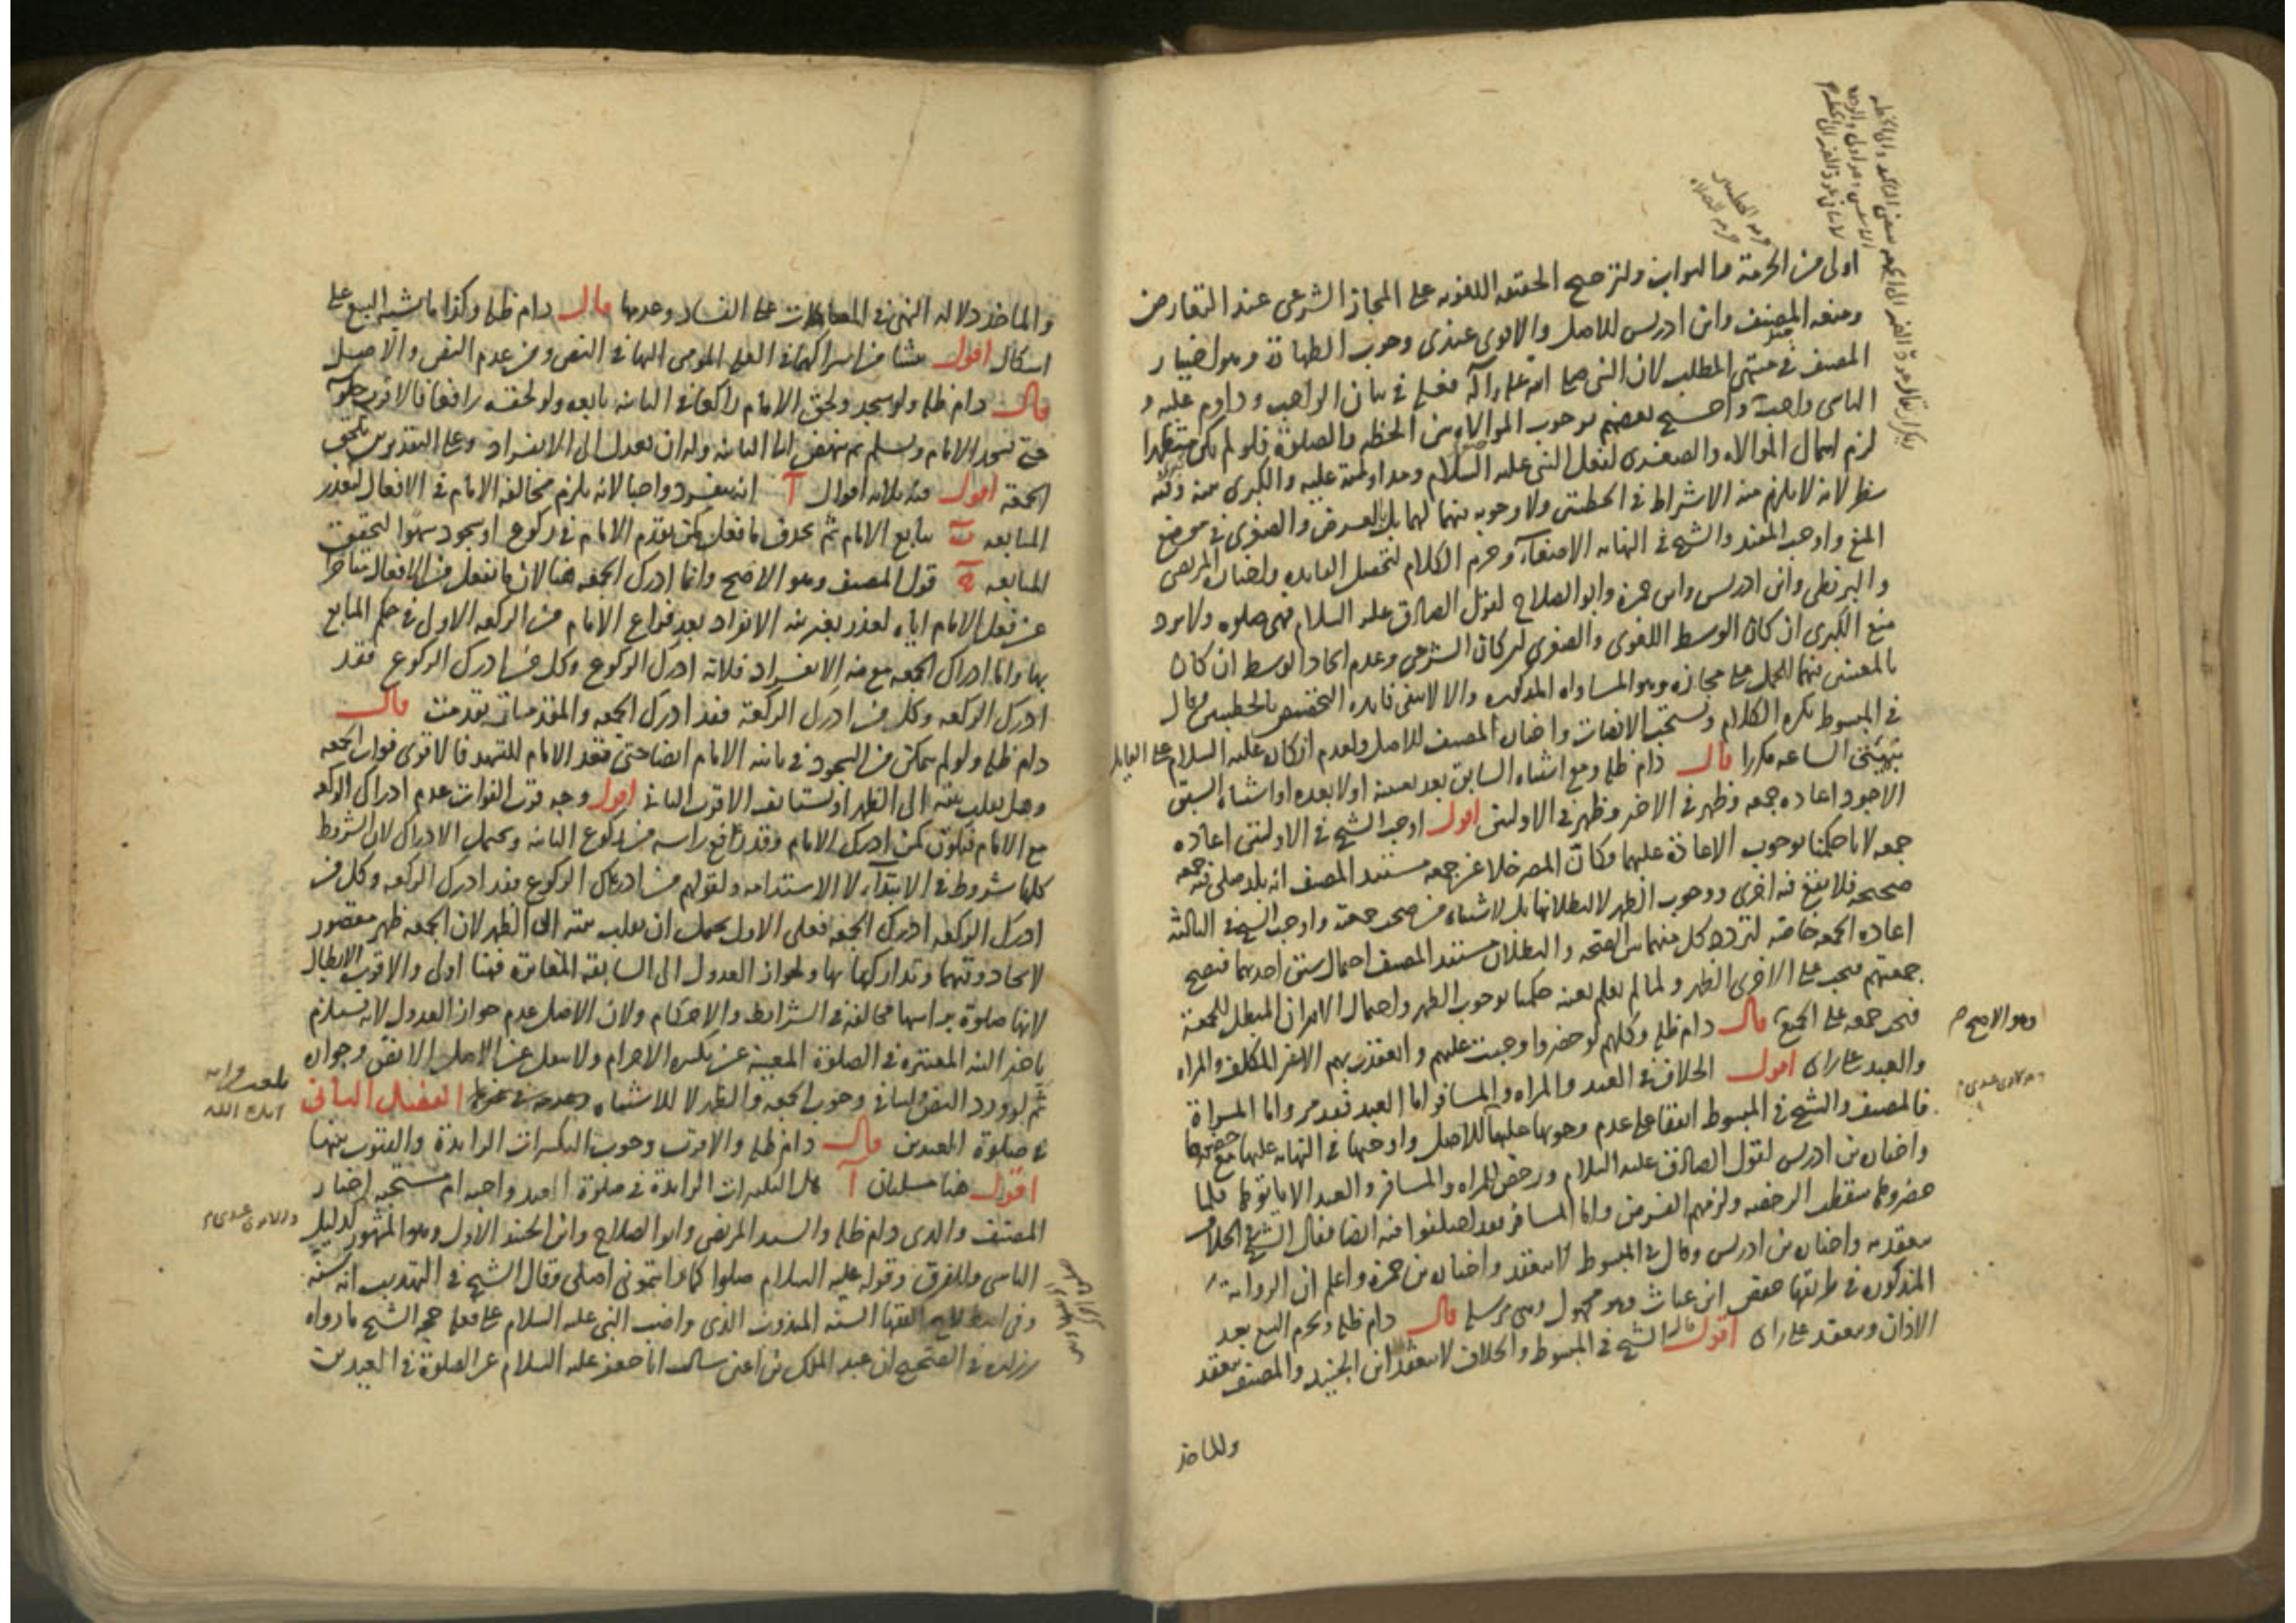 اولى من الحرمة والبواب ولترجيح الحقيقة اللغوية على المجاز الشرعى عند التعارض
ومنعه المصنف وابن ادريس للاصل والاقوى عندى وجوب الطهارة وهو اختيار
المصنف فى منتهى المطلب لان النبى صلى الله عليه وآله فعله فى بيان الواجب وداوم عليه و
التاسى واجب واحتج بعضهم بوجوب الموالاة بين الخطبة والصلوة فلو لم يكن متطهرا
لزم اهمال الموالاة والصغرى لفعل النبى عليه السلام ومداومته عليه والكبرى بينة وفيه
نظر لانه لا يلزم منه الاشتراط فى الخطبتين ولا وجوبه فيهما لهما بل بالعرض والصغرى فى موضع
المنع واوجب المفيد والشيخ فى النهاية الاصغاء وحرم الكلام لتحصل الفايدة واختاره المرتضى
والبزنطى وابن ادريس وابن حمزة وابو الصلاح لقول الصادق عليه السلام فهى صلوة ولا يرد
منع الكبرى ان كان الوسط اللغوى والصغرى ان كان الشرعى وعدم اتحاد الوسط ان كان
بالمعنيين فيهما للحمل على مجازه وهو المساواة المذكورة والا لانتفى فايدة التخصيص بالخطبتين وقال
فى المبسوط يكره الكلام ويستحب الانصات واختاره المصنف للاصل ولعدم انكاره عليه السلام على القايل
متى الساعة مكررا قال دام ظله ومع اشتباه السابق بعد تعينه او لا بعده او اشتباه السبق
الاجود اعادة جمعة وظهر فى الاخير وظهر فى الاولين اقول اوجب الشيخ فى الاولين اعادة
جمعة لانا حكمنا بوجوب الاعادة عليهما وكان المصر خلا عن جمعة مستند المصنف انه بلد صلى فيه جمعة
صحيحة فلا يقع فيه اخرى ووجوب الظهر لا لبطلانها بل لاشتباه من صحت جمعته واوجب الشيخ فى الثالثة
اعادة الجمعة خاصة لتردد كل منهما بين الصحة والبطلان مستند المصنف احتمال سبق احديهما فتصح
جمعتهم فيجب على الاخرى الظهر ولما لم يعلم بعينه حكمنا بوجوب الظهر واحتمال الاقتران المبطل للجمعة
فتجب جمعة على الجميع قال دام ظله وكلهم لو حضروا وجبت عليهم وانعقدت بهم الا غير المكلف والمراة
والعبد على راى اقول الخلاف فى العبد والمراة والمسافر اما العبد فقد مر واما المراة
فالمصنف والشيخ فى المبسوط اتفقا على عدم وجوبها عليها للاصل واوجبها فى النهاية عليها مع حضورها
واختاره ابن ادريس لقول الصادق عليه السلام ورخص للمراة والمسافر والعبد الا ياتوها فلما
حضروها سقطت الرخصة ولزمهم الفرض واما المسافر فقد اختلفوا فيه ايضا فقال الشيخ فى الخلاف
ينعقد به واختاره ابن ادريس وقال فى المبسوط لا ينعقد واختاره ابن حمزة واعلم ان الرواية
المذكورة فى طريقها حفص ابن غياث وهو مجهول وهى مرسلة قال دام ظله ويحرم البيع بعد
الاذان وينعقد على راى اقول قال الشيخ فى المبسوط والخلاف لا ينعقد ابن الجنيد والمصنف ينعقد
وهو الاصح م
والماخذ
والماخذ دلالة النهى فى المعاملات على الفساد وعدمها قال دام ظله وكذا ما شبه البيع على
اشكال اقول ينشا من اشتراكهما فى العلة المومى اليها فى النص ومن عدم النص والاصل
قال دام ظله ولو سجد ولحق الامام راكعا فى الثانية تابعه ولو لحقه رافعا فالاقرب جلوسه
حتى يسجد الامام ويسلم ثم ينهض الى الثانية وله ان يعدل الى الانفراد وعلى التقديرين يلحق
الجمعة اقول فيه ثلاثة اقوال آ انه ينفرد واجبا لانه يلزم مخالفة الامام فى الافعال لتعذر
المتابعة ب يتابع الامام ثم يحذف ما فعل كمن تقدم الامام فى ركوع او سجود سهوا لتحقق
المتابعة ج قول المصنف وهو الاصح وانما ادرك الجمعة هنا لان ما يفعل من الافعال متاخرا
عن فعل الامام اياه لعذر بغير نية الانفراد بعد فراغ الامام من الركعة الاولى فى حكم المتابع
بها واما ادراك الجمعة مع نية الانفراد فلانه ادرك الركوع وكل من ادرك الركوع فقد
ادرك الركعة وكل من ادرك الركعة فقد ادرك الجمعة والمقدمتان تقدمتا قال
دام ظله ولو لم يتمكن من السجود فى ثانية الامام ايضا حتى قعد الامام للتشهد فالاقوى فوات الجمعة
وهل يقلب نيته الى الظهر او يستانف الاقرب الثانى اقول وجه قرب الفوات عدم ادراك الركعة
مع الامام فيكون كمن ادرك الامام وقد رافع راسه من ركوع الثانية ويحتمل الادراك لان الشروط
كلها شروط فى الابتداء لا الاستدامة ولقولهم من ادرك الركوع فقد ادرك الركعة وكل من
ادرك الركعة ادرك الجمعة فعلى الاول يحتمل ان يقلب نيته الى الظهر لان الجمعة ظهر مقصور
لاتحاد وقتهما وتداركها بها ولجواز العدول الى السابقة المغايرة فهنا اولى والاقرب الابطال
لانها صلوة براسها مخالفة فى الشرايط والاحكام ولان الاصل عدم جواز العدول لانه يستلزم
تاخير النية المعتبرة فى الصلوة المعينة عن تكبيرة الاحرام ولا يعدل عن الاصل الا بنص وجوازه
ثم لورود النص ولما فى وجوب الجمعة والظهر لا للاشتباه الفصل الثانى
فى صلوة العيدين قال دام ظله والاقرب وجوب التكبيرات الزايدة والقنوت بينها
اقول هنا مسئلتان آ هل التكبيرات الزايدة فى صلوة العيد واجبة ام مستحبة اختار
المصنف والدى دام ظله والسيد المرتضى وابو الصلاح وابن الجنيد الاول وهو المشهور لدليل
التاسى وللفرق وقوله عليه السلام صلوا كما رايتمونى اصلى وقال الشيخ فى التهذيب انه سنة
وفى اصطلاح الفقها السنة المندوب الذى واضب النبى عليه السلام على فعله حجة الشيخ ما رواه
زرارة فى الصحيح ان عبد الملك بن اعين سال ابا جعفر عليه السلام عن الصلوة فى العيدين